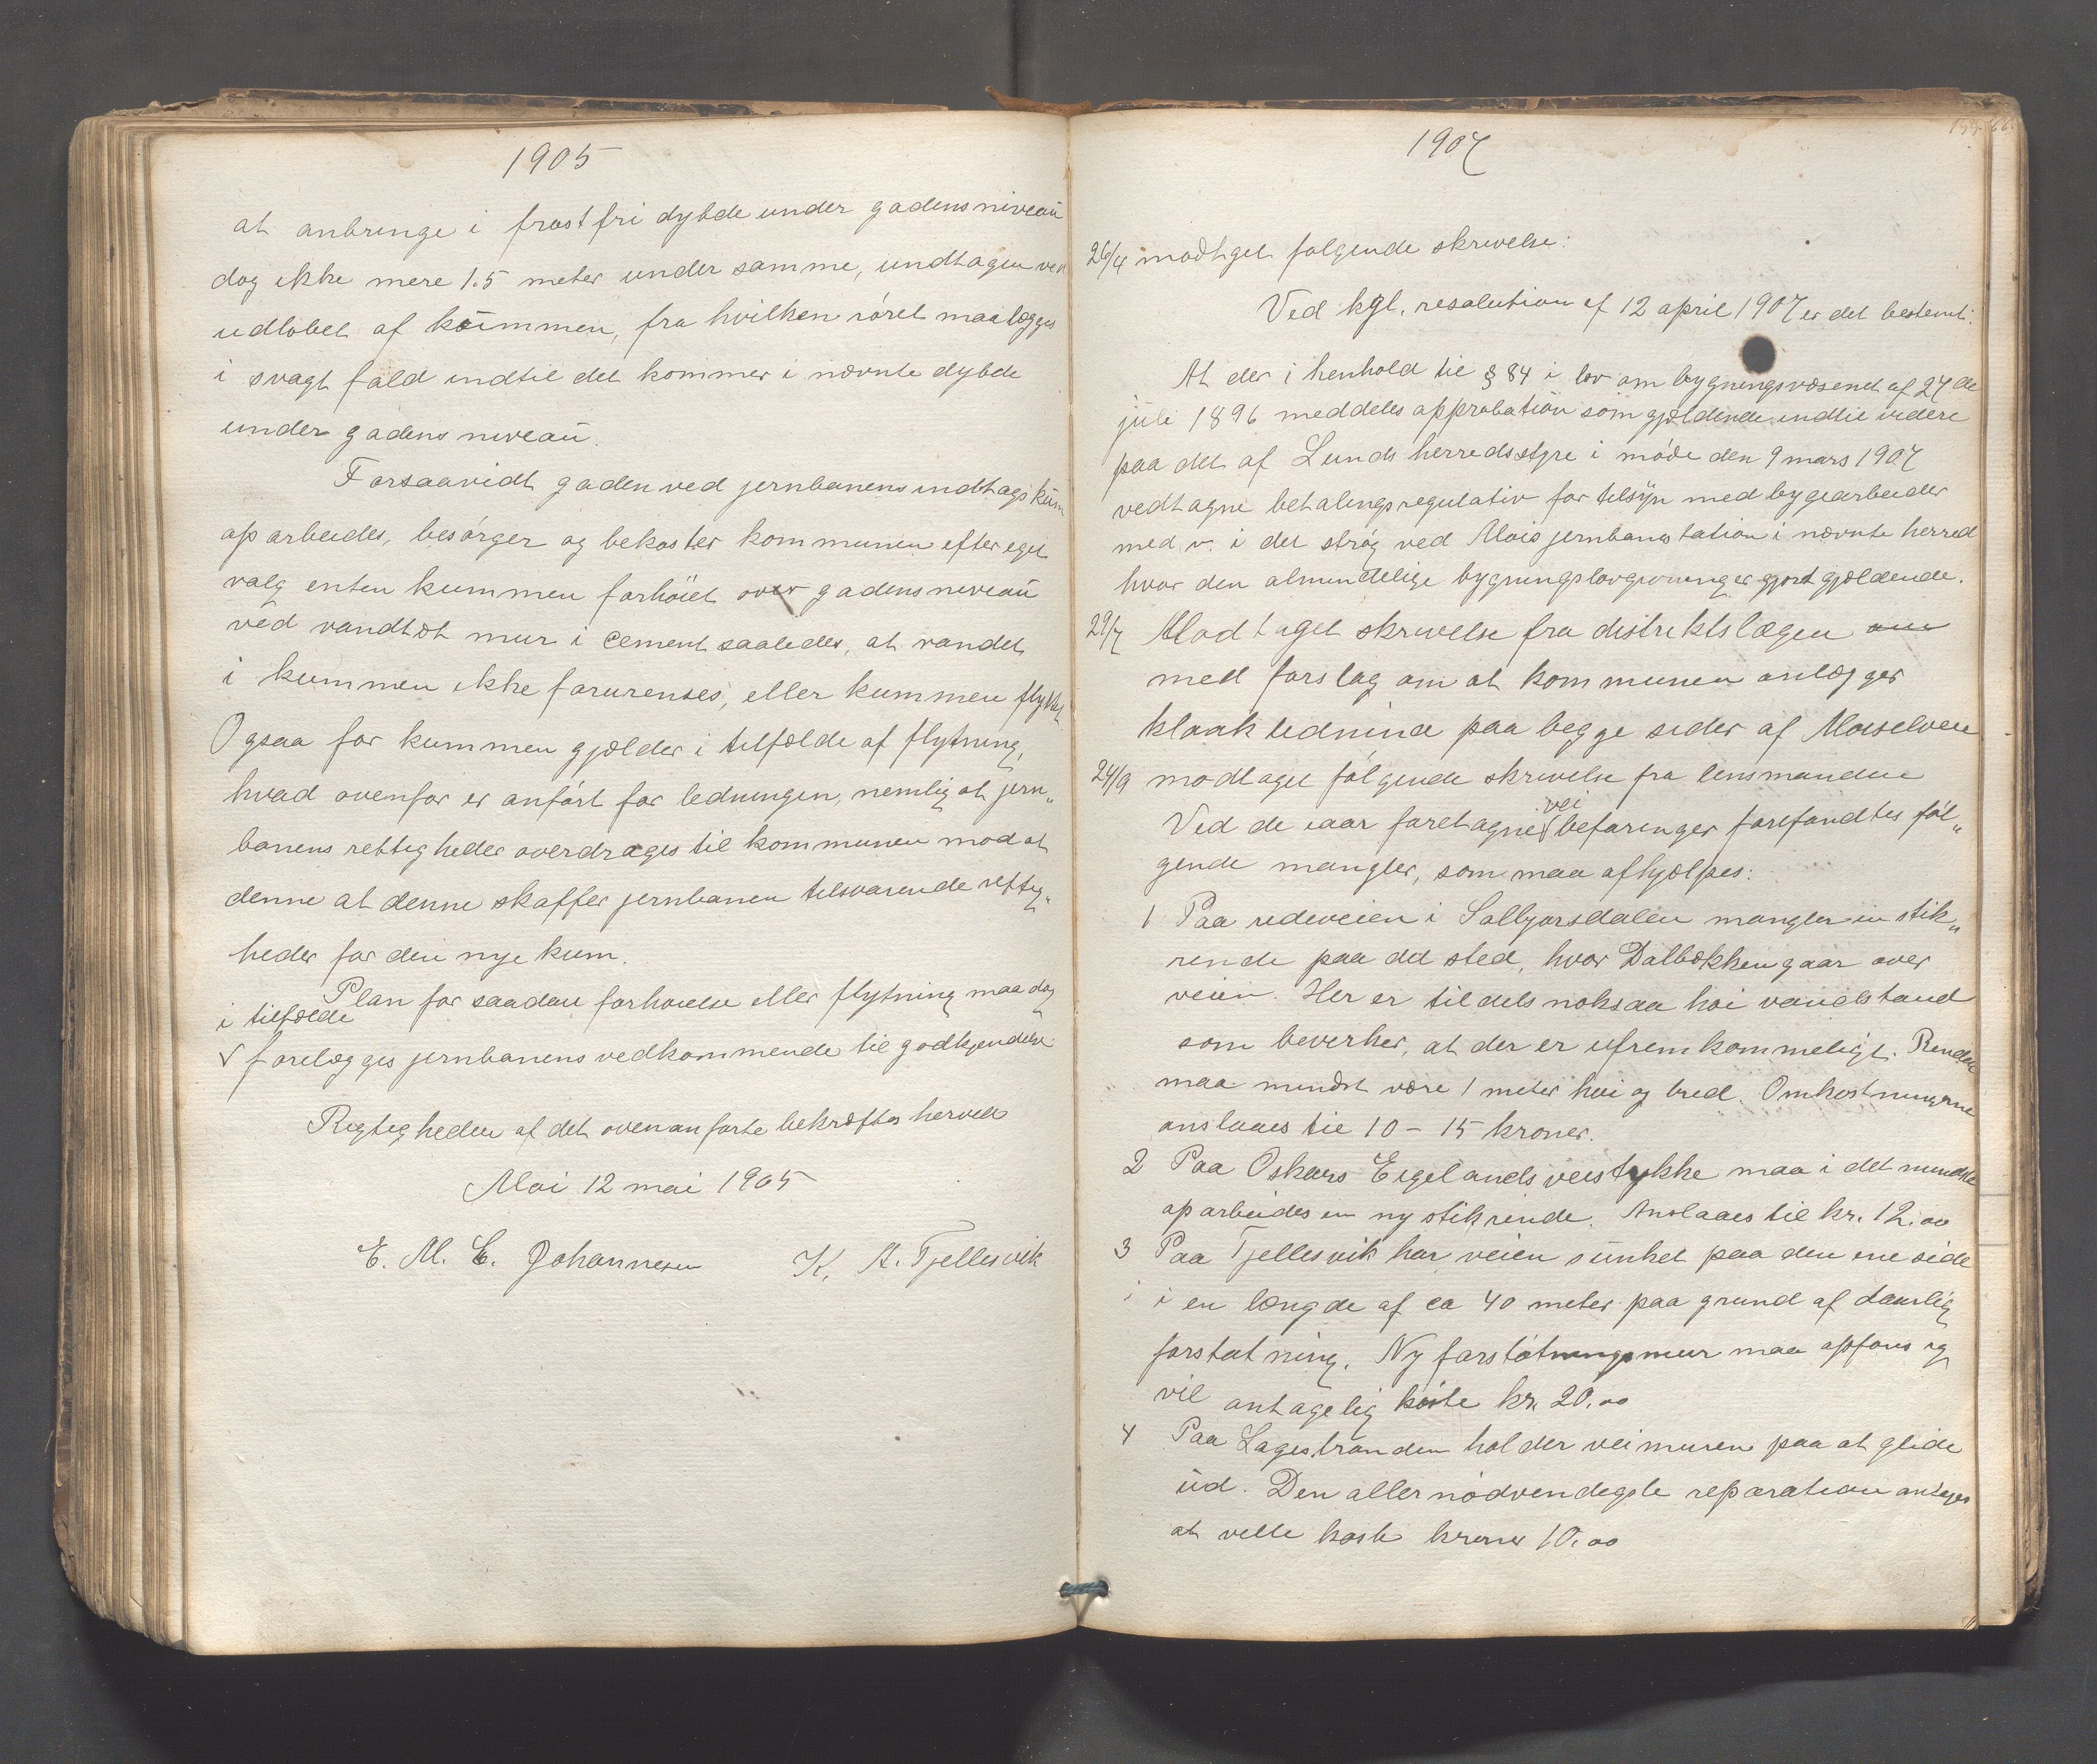 1905
at anbringe i frostfri dybde under gadens niveau
dog ikke mere 1.5 meter under samme, undtagen ved
udløbet af kummen, fra hvilken røret maa lægges
i svagt fald indtil det kommer i nævnte dybde
under gadens niveau.
Forsaavidt gaden ved jernbanens indtagskum
oparbeides, besørger og bekoster kommunen efter eget
valg enten kummen forhøiet over gadens niveau
ved vandtæt mur i cement saaledes, at vandet
i kummen ikke forurenses, eller kummen flyttet
Ogsaa for kummen gjælder i tilfælde af flytning,
hvad ovenfor er anført for ledningen, nemlig at jern„
banens rettigheder overdrages til kommunen mod at
denne at denne skaffer jernbanen tilsvarende rettig„
heder for den nye kum.
Plan for saadan forhøielse eller flytning maa dog
i tilfælde
√ forelægges jernbanens vedkommende til godkjendelse.
Rigtigheden af det ovenanførte bekræftes herved
Moi 12 mai 1905
E. M. C. Johannesen K. A. Tjellesvik
1907
26/4 modtget følgende skrivelse:
Ved kgl. resolution af 12 april 1907 er det bestemt:
At der i henhold til § 84 i lov om bygningsvæsenet af 27de
juli 1896 meddeles approbation som gjældende indtil videre
paa det af Lunds herredsstyre i møde den 9 mars 1907
vedtagne betalingsregulativ for tilsyn med bygearbeider
med v. i det strøg ved Mois jernbanestation i nævnte herred
hvor den almindelige bygningslovgivning er gjort gjældende.
29/7 Modtaget skrivelse fra distriktslægen om
med forslag om at kommunen anlægger
kloakledning paa begge sider af Moiselven
24/9 modtaget følgende skrivelse fra lensmanden
vei
Ved de iaar foretagne √ befaringer forefandtes føl„
gende mangler, som maa afhjælpes:
1 Paa rideveien i Salbjørsdalen mangler en stik„
rende paa det sted, hvor Dalbækken gaar over
veien. Her er tildels noksaa høi vandstand
som bevirker, at der er ufremkommeligt. Renden
maa mindst være 1 meter høi og bred. Omkostningerne
anslaaes til 10 – 15 kroner.
2 Paa Oskars Eigelands veistykke maa i det mindste
oparbeides en ny stikrende. Anslaaes til kr. 12.00
3 Paa Tjellesvik har veien sunket paa den ene side
i en længde af ca 40 meter paa grund af daarlig
forstøtning. Ny forstøtningsmur maa opføres og
vil antagelig koste kr. 20.00
4 Paa Lagestranden holder veimuren paa at glide
ud. Den allernødvendigste reparation antages
at ville koste kroner 10.00